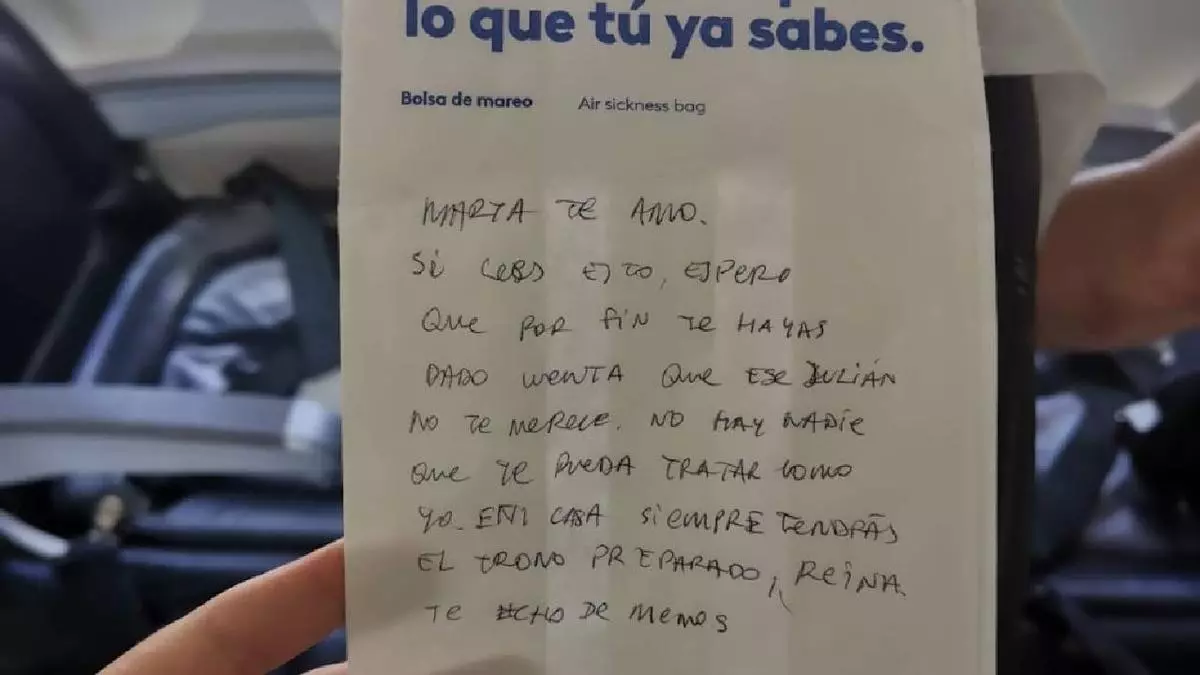 lo que tú ya sabes.
Bolsa de mareo Air sickness bag
MARTA TE AMO.
Si LEES ESTO, ESPERO
QUE POR FIN TE HAYAS
DADO CUENTA QUE ESE JULIÁN
NO TE MERECE. NO HAY NADIE
QUE TE PUEDA TRATAR COMO
YO. EN MI CASA SIEMPRE TENDRÁS
EL TRONO PREPARADO, REINA.
TE ECHO DE MENOS